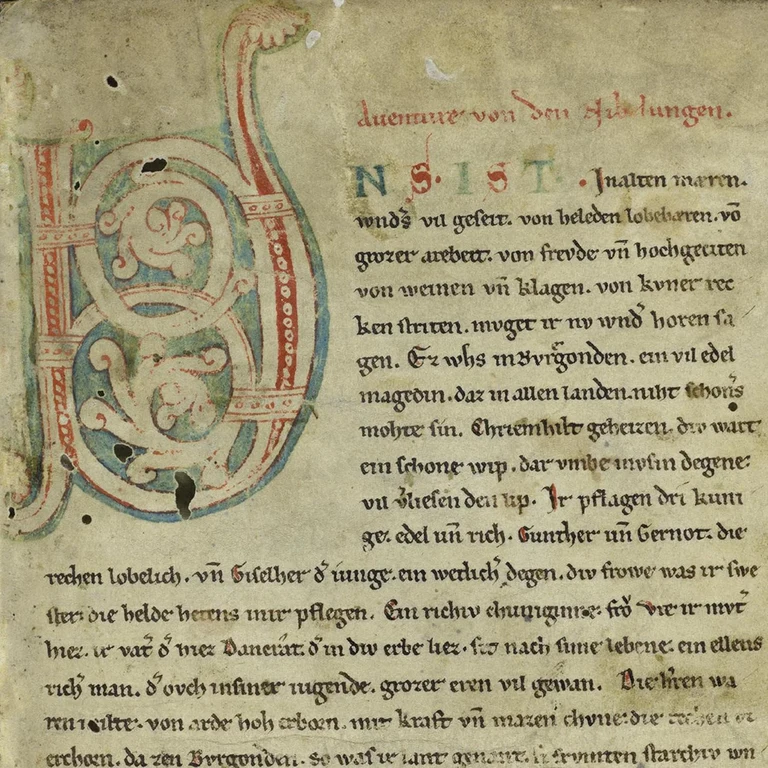 Auenture von den Nibelungen.
VNS. IST. In alten mæren.
wnds̄ vil geseit. von heleden lobebæren. vō
grozer arebeit. von frevde vn̄ hochgeciten
von weinen vn̄ klagen. von kvner rec
ken striten. mvget ir nv wnd̓ horen sa
gen. Ez whs in Bvrgonden. ein vil edel
magedin. daz in allen landen. niht schon̓s
mohte sin. Chriemhilt geheizen. div wart
ein schone wip. dar vmbe mvsin degene
vil v̓liesen den lip. Ir pflagen dri kuni
ge. edel un̄ rich. Gunther un̄ Gernot. die
rechen lobelich. vn̄ Giselher d̓ iunge. ein wetlich̓ degen. div frowe was ir swe
ster. die helde hetens inir pflegen. Ein richiv chuniginne. frō vͦte ir mvt̓
hiez. ir vat̓ d̓ hiez Dancrat. d̓ in div erbe liez. sit nach sime lebene. ein ellens
rich̓ man. d̓ ovch in siner iugende. grozer eren vil gewan. Die h̓ren wa
ren milte. von arde hoh erborn. mit kraft vn̄ mazen chvne. die rechen vz
erchorn. da zen Bvrgonden. so was ir lant genant. si frvmten starchiv wn